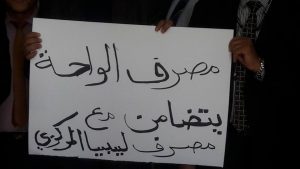 مصرف الواحة
يتضامن مع
مصرف ليبيا المركزي